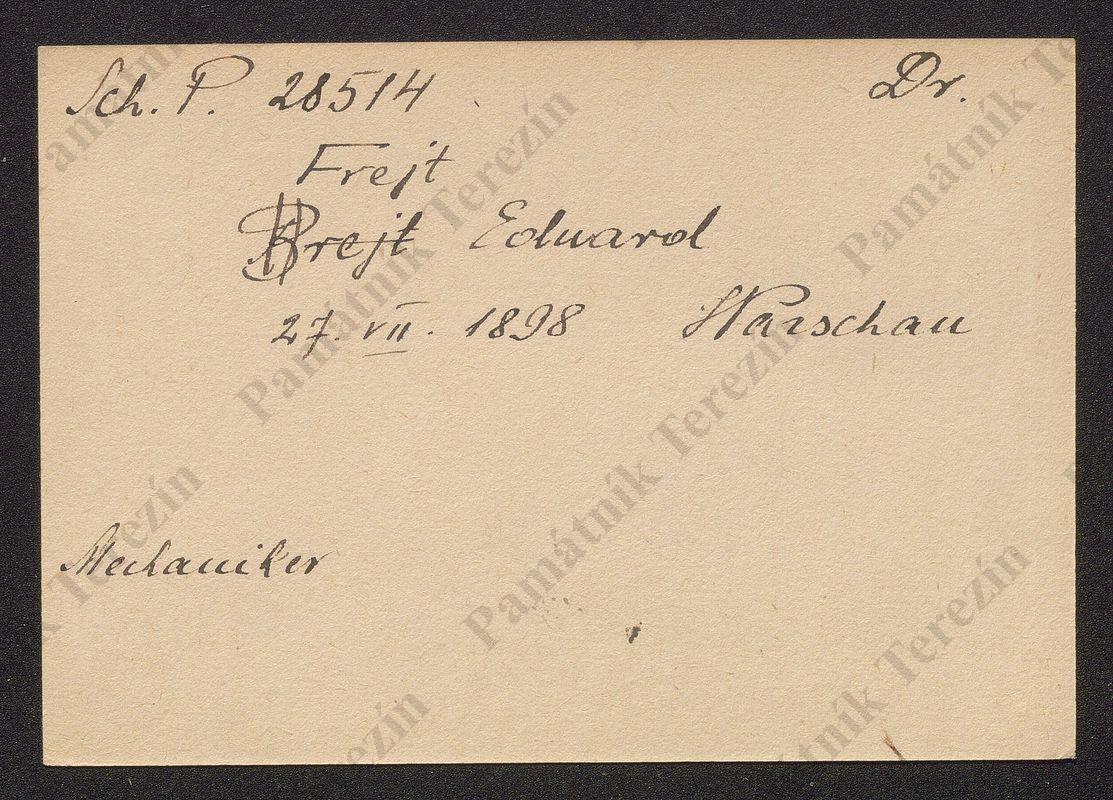 Sch. P. 28514 Dr.
Frejt
Brejt Eduard
27. VII. 1898 Warschau
Mechaniker
Památník Terezín
Památník Terezín
Památník Terezín
Památník Terezín